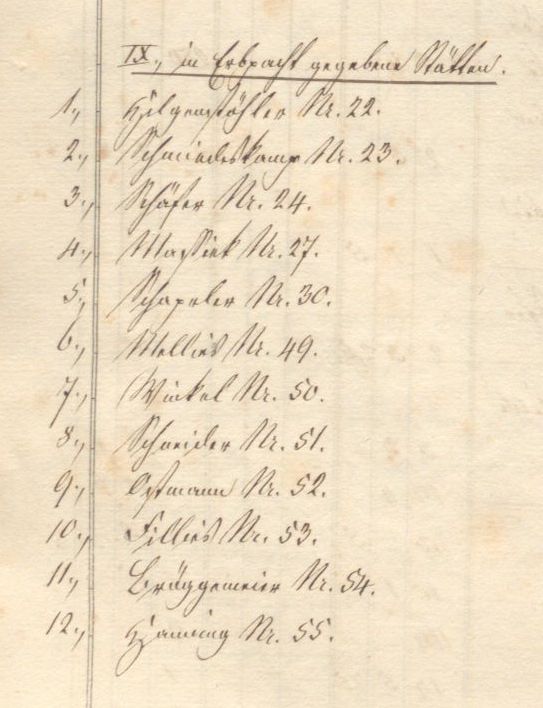 IX., in Erbpacht gegebene Stätten.
1., Hilgenstöhler Nr. 22.
2., Schmiedeskamp Nr. 23.
3., Schäfer Nr. 24.
4., Nr. 27.
5., Schapeler Nr. 30.
6., Mellies Nr. 49.
7., Winkel Nr. 50.
8., Schneider Nr. 51.
9., Ostmann Nr. 52.
10., Fillies Nr. 53.
11., Brüggemeier Nr. 54.
12., Nr. 55.